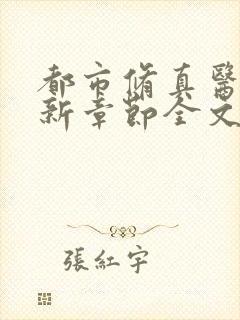 都市脩真醫
新章節全文
張紅宇